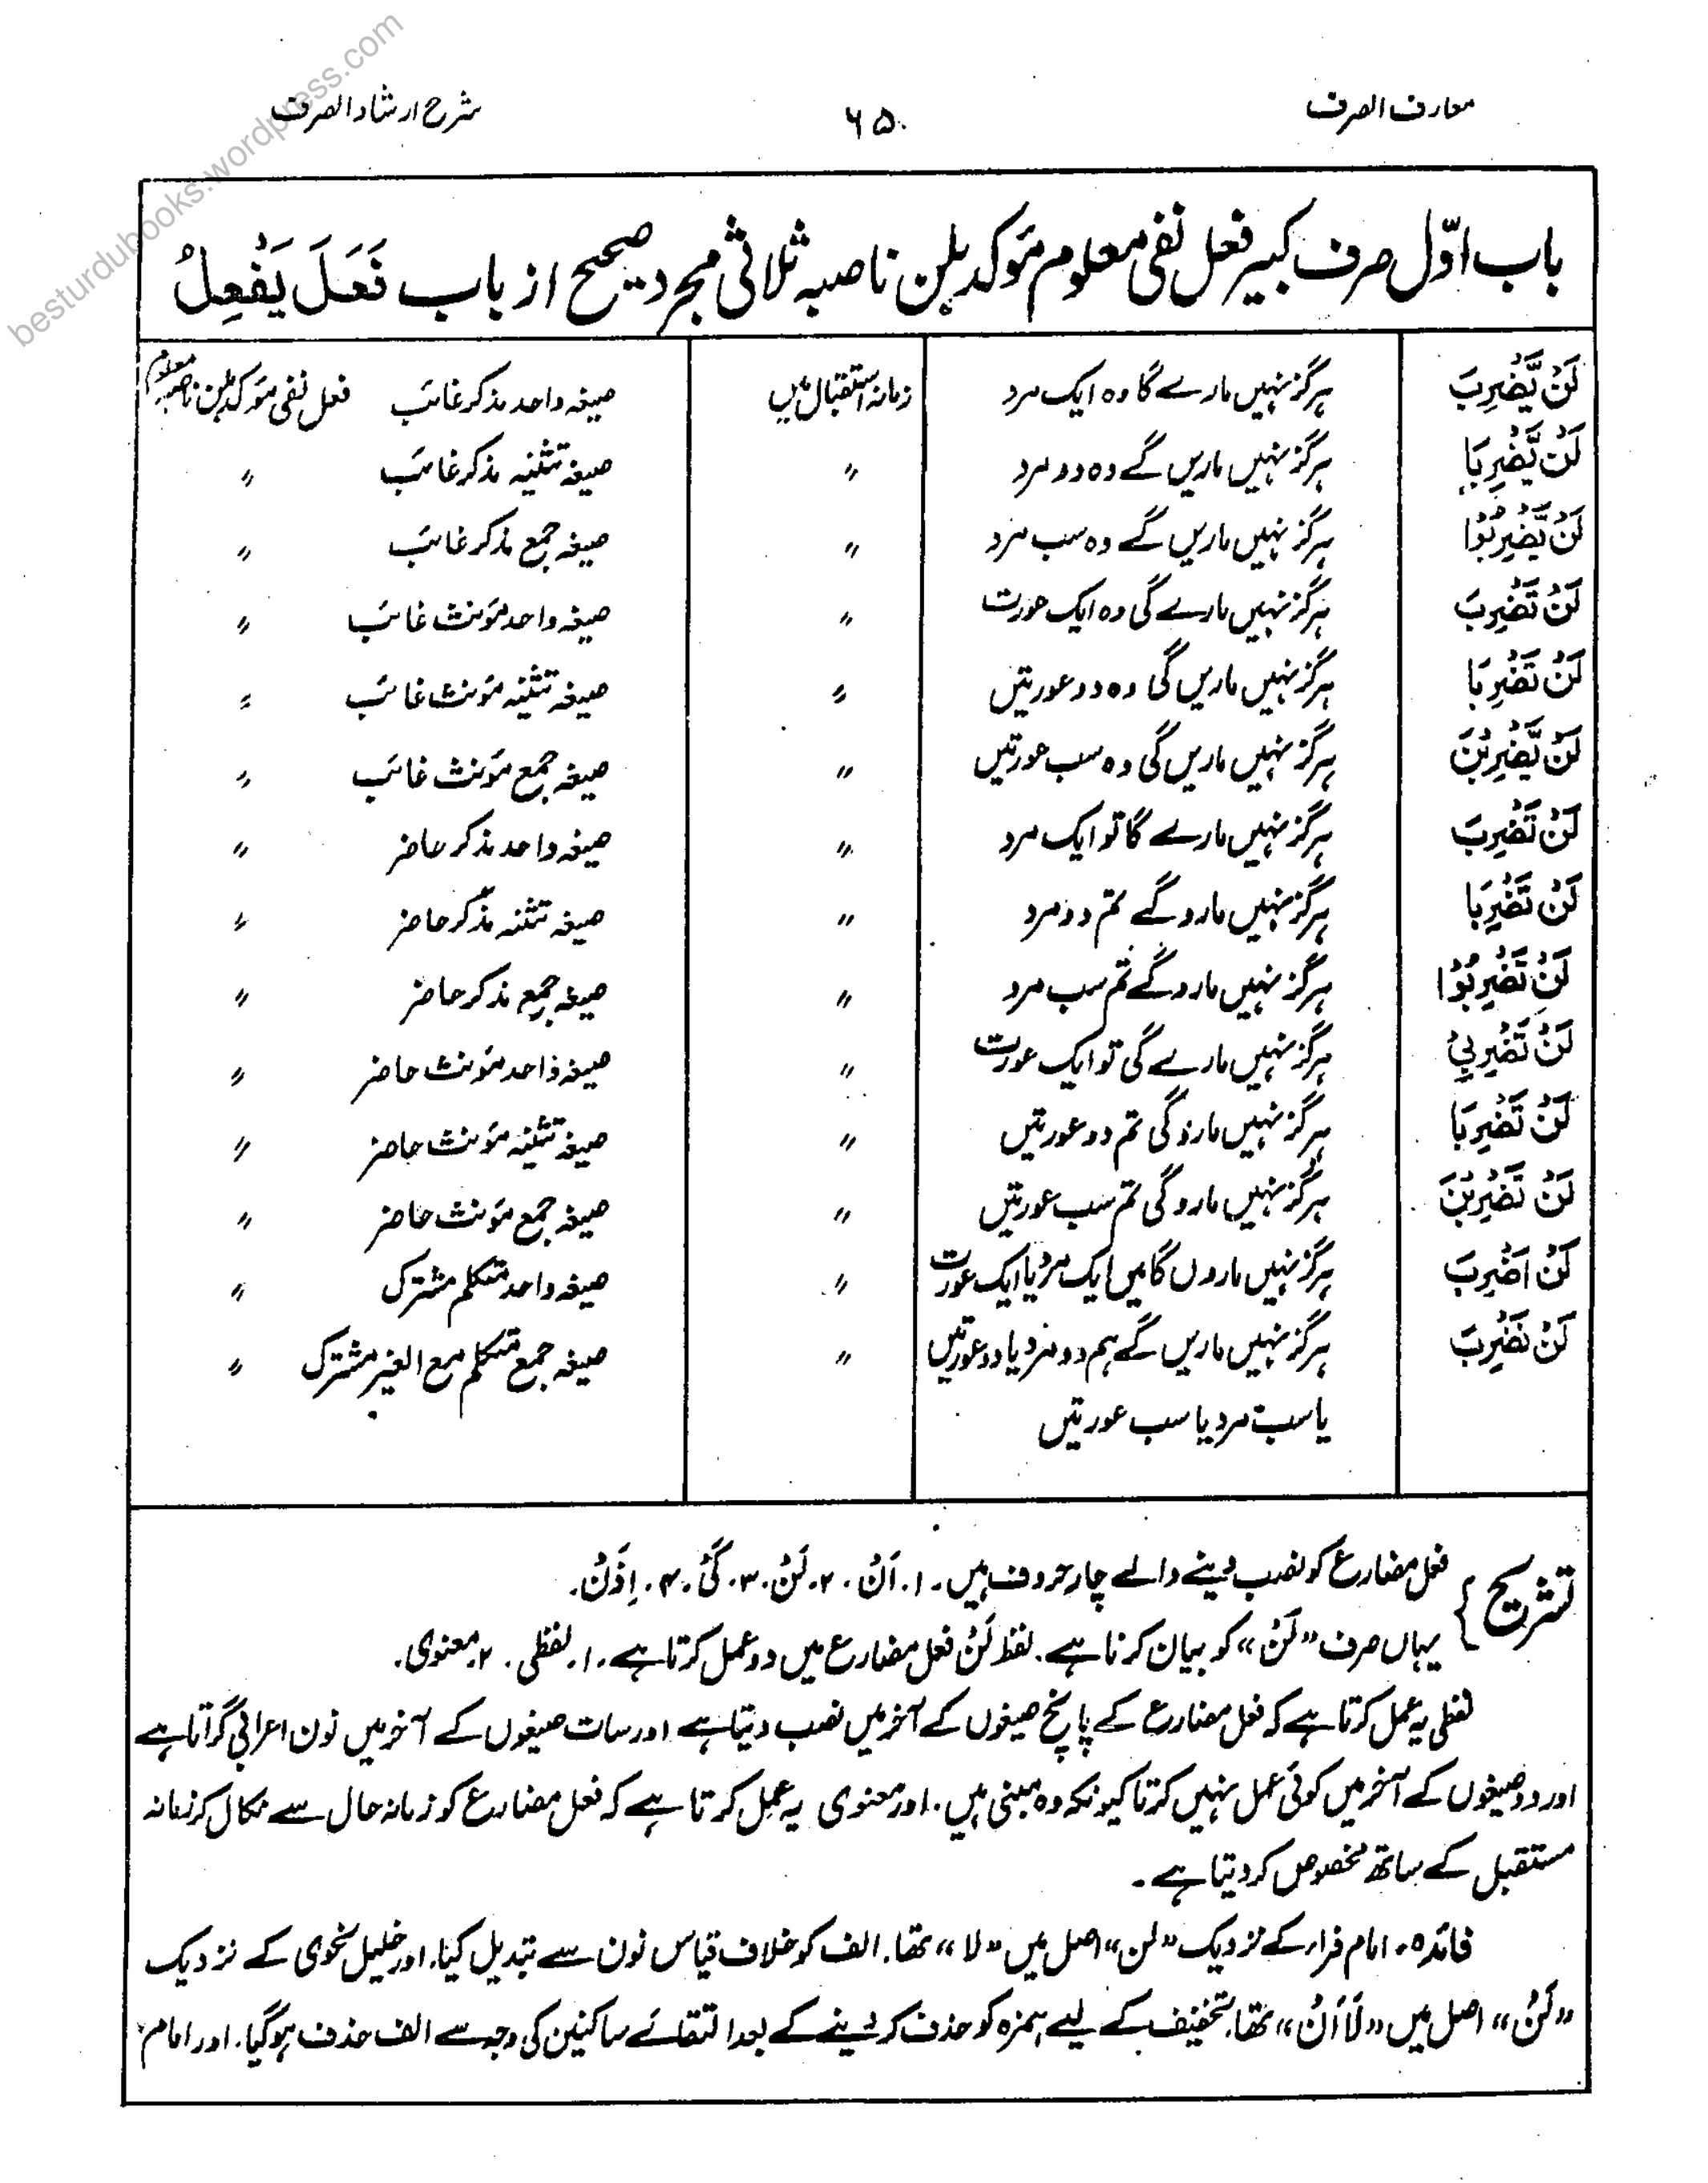 معارف الصرف ۶۵ شرح ارشاد الصرف
besturdubooks.wordpress.com
باب اوّل صرف کبیر فعل نفی معلوم مؤکد بلن ناصبہ ثلاثی مجرد صحیح از باب فَعَلَ یَفْعِلُ
لَنْ یَّضْرِبَ ہرگز نہیں مارے گا وہ ایک مرد زمانہ استقبال میں صیغہ واحد مذکر غائب فعل نفی مؤکد بلن ناصبہ معلوم
لَنْ یَّضْرِبَا ہرگز نہیں ماریں گے وہ دو مرد 〃 صیغہ تثنیہ مذکر غائب 〃
لَنْ یَّضْرِبُوْا ہرگز نہیں ماریں گے وہ سب مرد 〃 صیغہ جمع مذکر غائب 〃
لَنْ تَضْرِبَ ہرگز نہیں مارے گی وہ ایک عورت 〃 صیغہ واحد مؤنث غائب 〃
لَنْ تَضْرِبَا ہرگز نہیں ماریں گی وہ دو عورتیں 〃 صیغہ تثنیہ مؤنث غائب 〃
لَنْ یَّضْرِبْنَ ہرگز نہیں ماریں گی وہ سب عورتیں 〃 صیغہ جمع مؤنث غائب 〃
لَنْ تَضْرِبَ ہرگز نہیں مارے گا تو ایک مرد 〃 صیغہ واحد مذکر حاضر 〃
لَنْ تَضْرِبَا ہرگز نہیں مارو گے تم دو مرد 〃 صیغہ تثنیہ مذکر حاضر 〃
لَنْ تَضْرِبُوْا ہرگز نہیں مارو گے تم سب مرد 〃 صیغہ جمع مذکر حاضر 〃
لَنْ تَضْرِبِیْ ہرگز نہیں مارے گی تو ایک عورت 〃 صیغہ واحد مؤنث حاضر 〃
لَنْ تَضْرِبَا ہرگز نہیں مارو گی تم دو عورتیں 〃 صیغہ تثنیہ مؤنث حاضر 〃
لَنْ تَضْرِبْنَ ہرگز نہیں مارو گی تم سب عورتیں 〃 صیغہ جمع مؤنث حاضر 〃
لَنْ اَضْرِبَ ہرگز نہیں ماروں گا میں ایک مرد یا ایک عورت 〃 صیغہ واحد متکلم مشترک 〃
لَنْ نَضْرِبَ ہرگز نہیں ماریں گے ہم دو مرد یا دو عورتیں 〃 صیغہ جمع متکلم مع الغیر مشترک 〃
یا سب مرد یا سب عورتیں
تشریح } فعل مضارع کو نصب دینے والے چار حروف ہیں۔ ۱. اَنْ ۔ ۲. لَنْ ۔ ۳. کَیْ ۔ ۴. اِذَنْ۔
یہاں صرف ”لَنْ“ کو بیان کرنا ہے۔ لفظ لَنْ فعل مضارع میں دو عمل کرتا ہے۔ ۱. لفظی ۔ ۲. معنوی۔
لفظی یہ عمل کرتا ہے کہ فعل مضارع کے پانچ صیغوں کے آخر میں نصب دیتا ہے اور سات صیغوں کے آخر میں نون اعرابی گراتا ہے
اور دو صیغوں کے آخر میں کوئی عمل نہیں کرتا کیونکہ وہ مبنی ہیں۔ اور معنوی یہ عمل کرتا ہے کہ فعل مضارع کو زمانہ حال سے نکال کر زمانہ
مستقبل کے ساتھ مخصوص کر دیتا ہے۔
فائدہ۔ امام فراء کے نزدیک ”لن“ اصل میں ”لا“ تھا۔ الف کو خلاف قیاس نون سے تبدیل کیا۔ اور خلیل نحوی کے نزدیک
”لَنْ“ اصل میں ”لَا اَنْ“ تھا تخفیف کے لیے ہمزہ کو حذف کر دینے کے بعد التقائے ساکنین کی وجہ سے الف حذف ہو گیا۔ اور امام